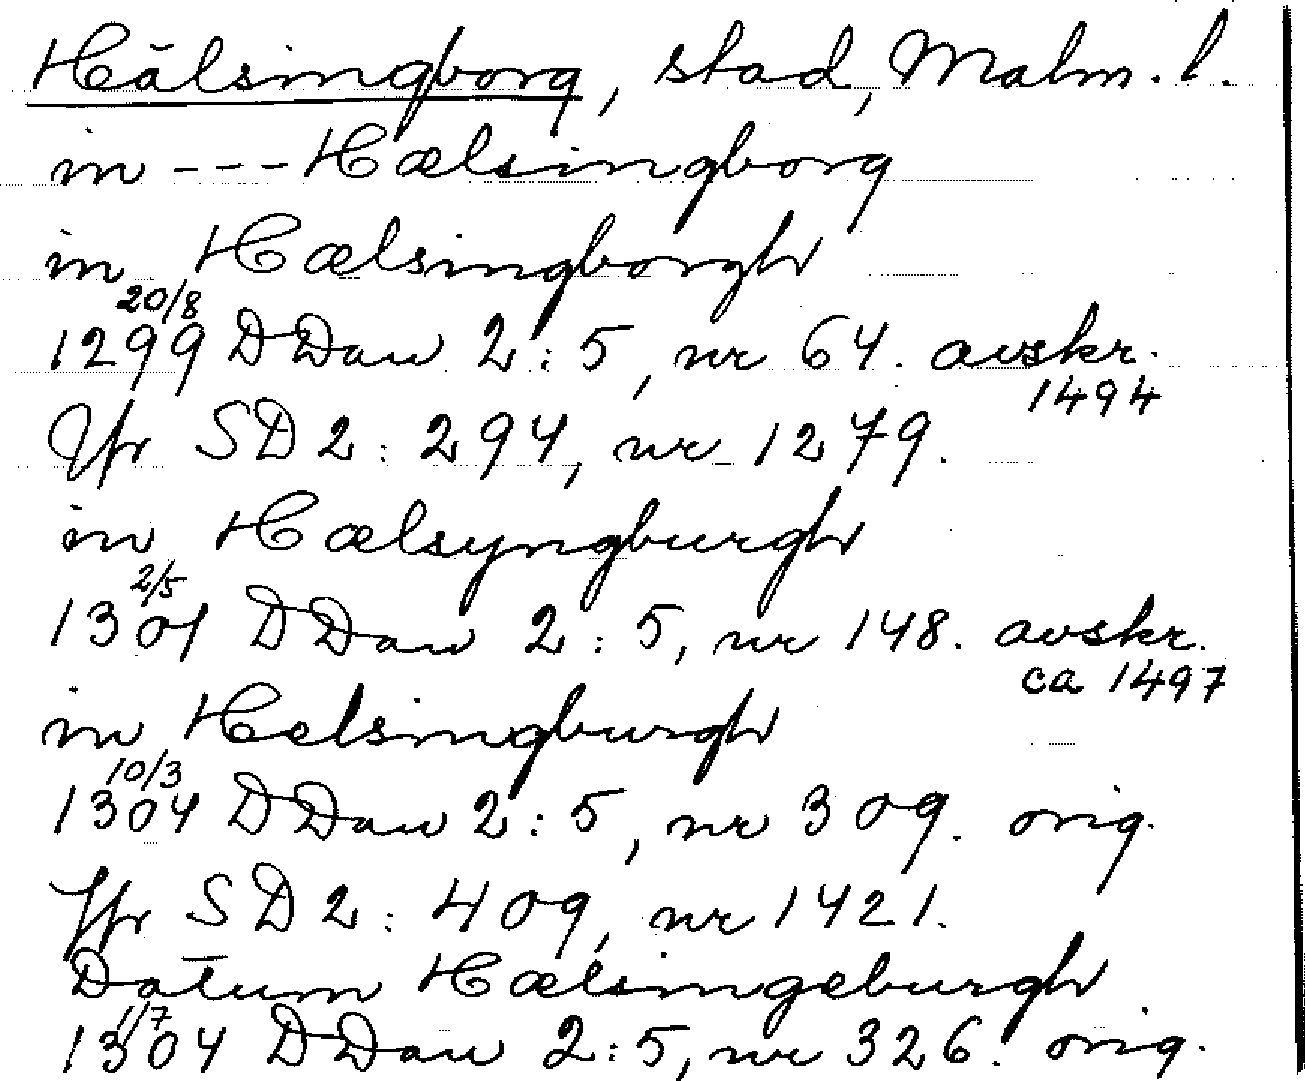 Hälsingborg, stad, Malm. l.
in - - - Hælsingborg
in Hælsingborgh
20/8
1299 DDan 2:5, nr 64. avskr.
1494
Jfr SD 2: 294, nr 1279.
in Hælsyngburgh
2/5
1301 DDan 2:5, nr 148. avskr.
ca 1497
in Helsingburgh
10/3
1304 DDan 2:5, nr 309. orig.
Jfr SD 2: 409, nr 1421.
Datum Hælsingeburgh
1/7
1304 DDan 2:5, nr 326. orig.